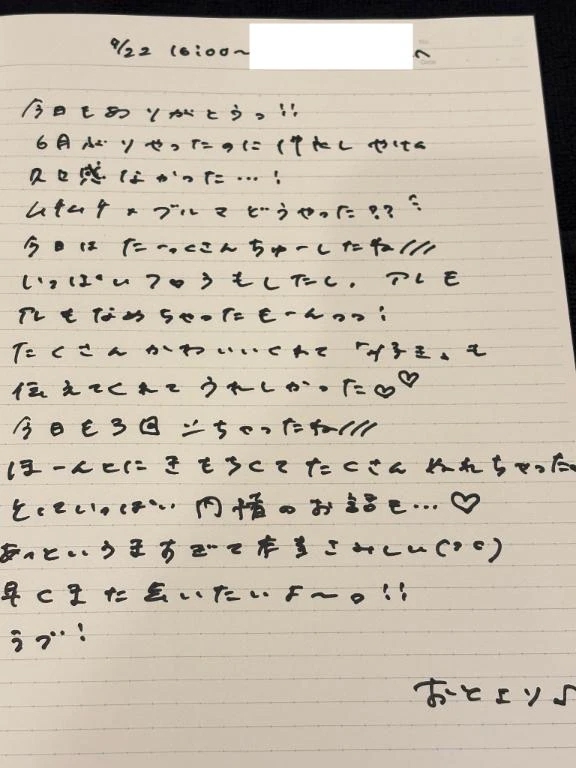 9/22 16:00〜 へ
今日もありがとうっ!!
6月ぶりやったのに 何だし やけん
久々感なかった…!
ムチムチ×ブルマどうやった??
今日は たーっくさんちゅーしたね///
いっぱい もしたし、アレも
アレもなめちゃったもーんっっ!
たくさん かわいいくれて「好き」も
伝えてくれて うれしかった♡♡
今日も3回 ちゃったね///
ほーんとに きもちくて たくさん ぬれちゃった
そしていっぱい 内情のお話も…♡
あっというますぎて 本当さみしい( )
早くまた会いたいよ〜。!!
ラブ!
おとより♪